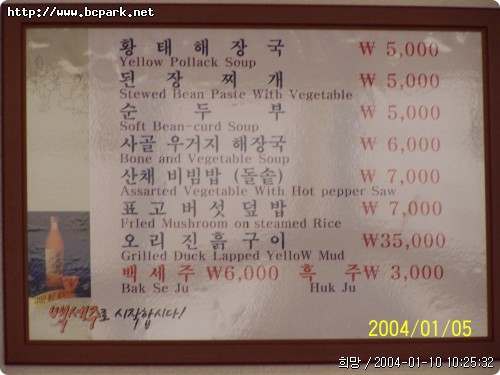 http://www.bcpark.net
황태해장국 ₩ 5,000
Yellow Pollack Soup
된장찌개 ₩ 5,000
Stewed Bean Paste With Vegetable
순두부 ₩ 5,000
Soft Bean-curd Soup
사골 우거지 해장국 ₩ 6,000
Bone and Vegetable Soup
산채 비빔밥 (돌솥) ₩ 7,000
Assarted Vegetable With Hot pepper Saw
표고버섯덮밥 ₩ 7,000
Frled Mushroom on steamed Rice
오리진흙구이 ₩35,000
Grilled Duck Lapped YelloW Mud
백세주 ₩6,000 흑주 ₩ 3,000
Bak Se Ju Huk Ju
백세주로 시작합시다!
2004/01/05
희망 / 2004-01-10 10:25:32